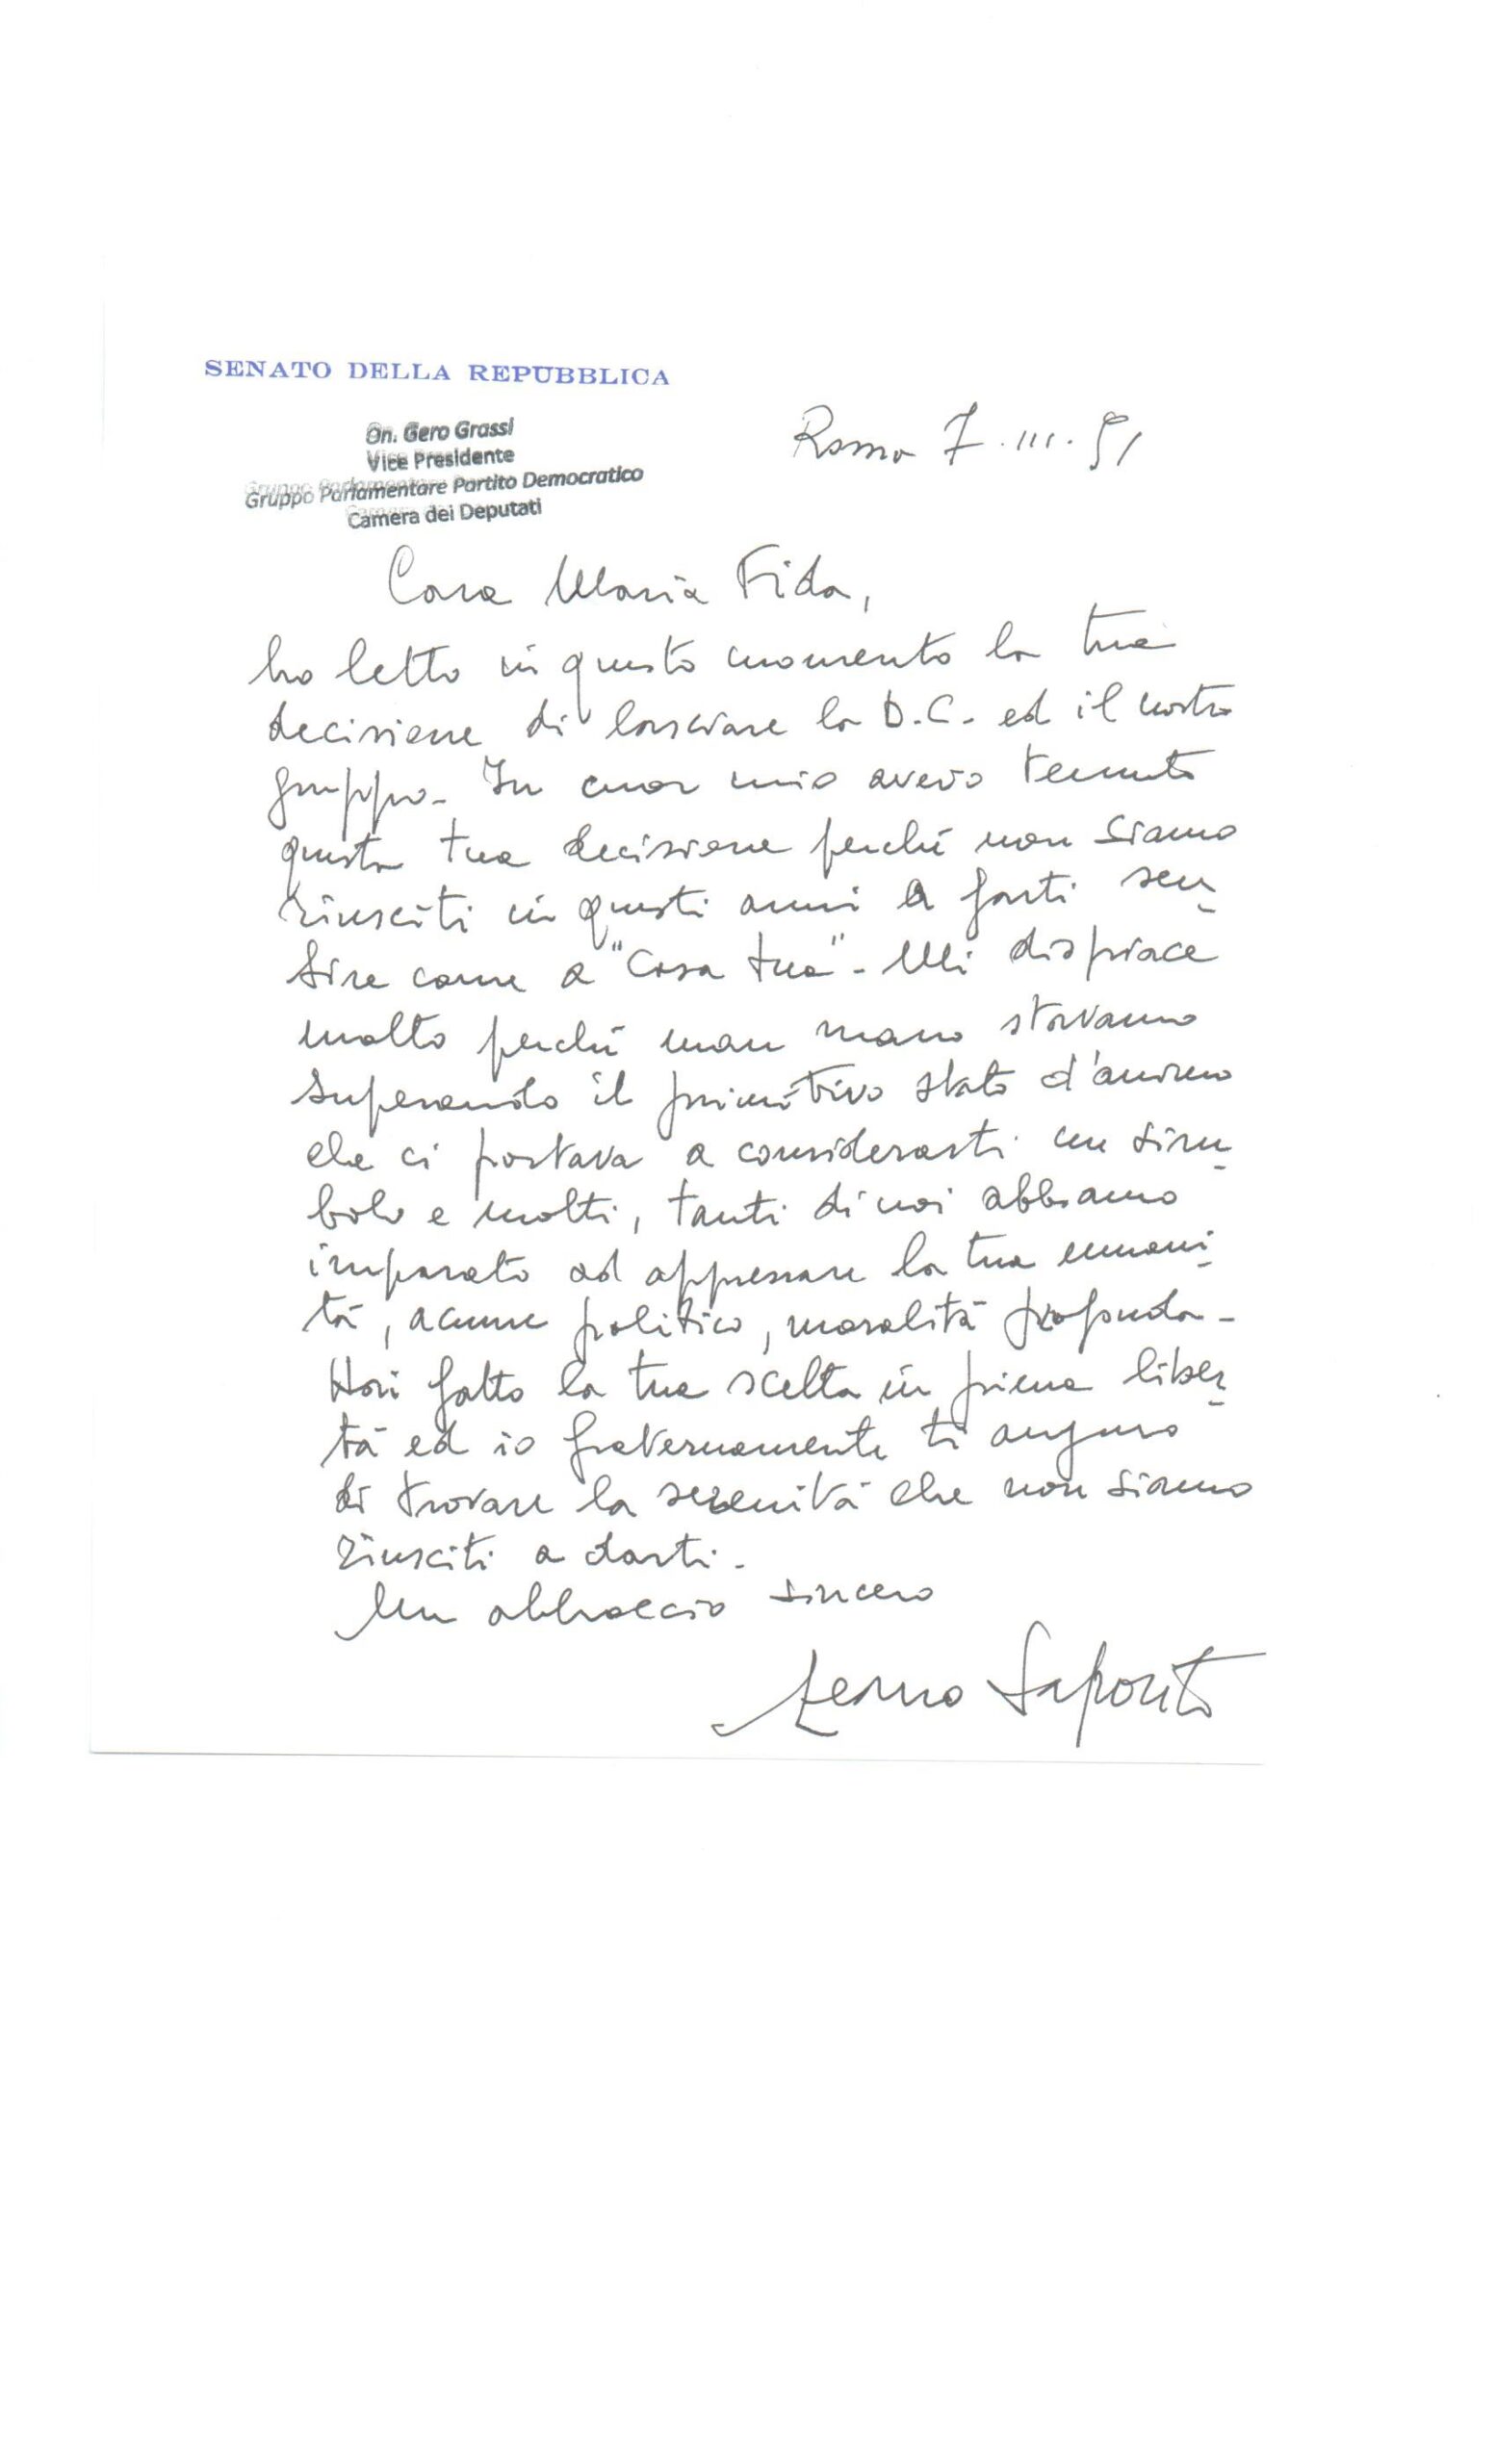 SENATO DELLA REPUBBLICA
On. Gero Grassi
Vice Presidente
Gruppo Parlamentare Partito Democratico
Camera dei Deputati
Roma 7.III.91
Cara Maria Fida,
ho letto in questo momento la tua
decisione di lasciare la D.C. ed il nostro
gruppo. In cuor mio avevo temuto
questa tua decisione perché non siamo
riusciti in questi anni a farti sen-
tire come a "casa tua". Mi dispiace
molto perché man mano stavamo
superando il primitivo stato d'animo
che ci portava a considerarti un sim-
bolo e molti, tanti di noi abbiamo
imparato ad apprezzare la tua umani-
tà, acume politico, moralità profonda.
Hai fatto la tua scelta in piena liber-
tà ed io fraternamente ti auguro
di trovare la serenità che non siamo
riusciti a darti.
Un abbraccio sincero
Saporito